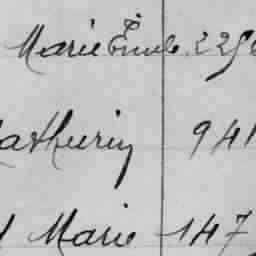 Marie Émile 225
athurin 941
Marie 147